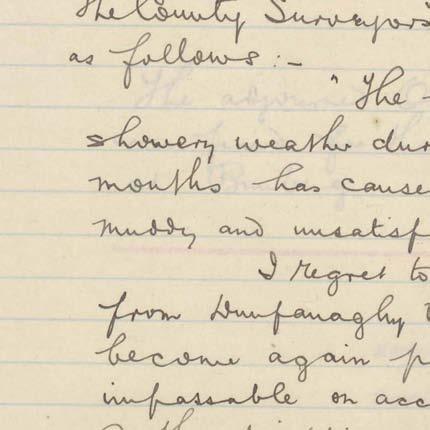 The County Surveyors
as follows :-
" The
showery weather dur
months has cause
muddy and unsatisf
I regret to
from Dunfanaghy
become again p
impassable on acc